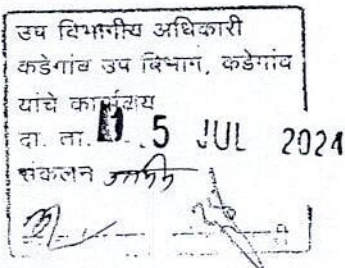 उप विभागीय अधिकारी
कडेगांव उप विभाग, कडेगांव
यांचे कार्यालय
दा. ता. 5 JUL 2024
संकलन